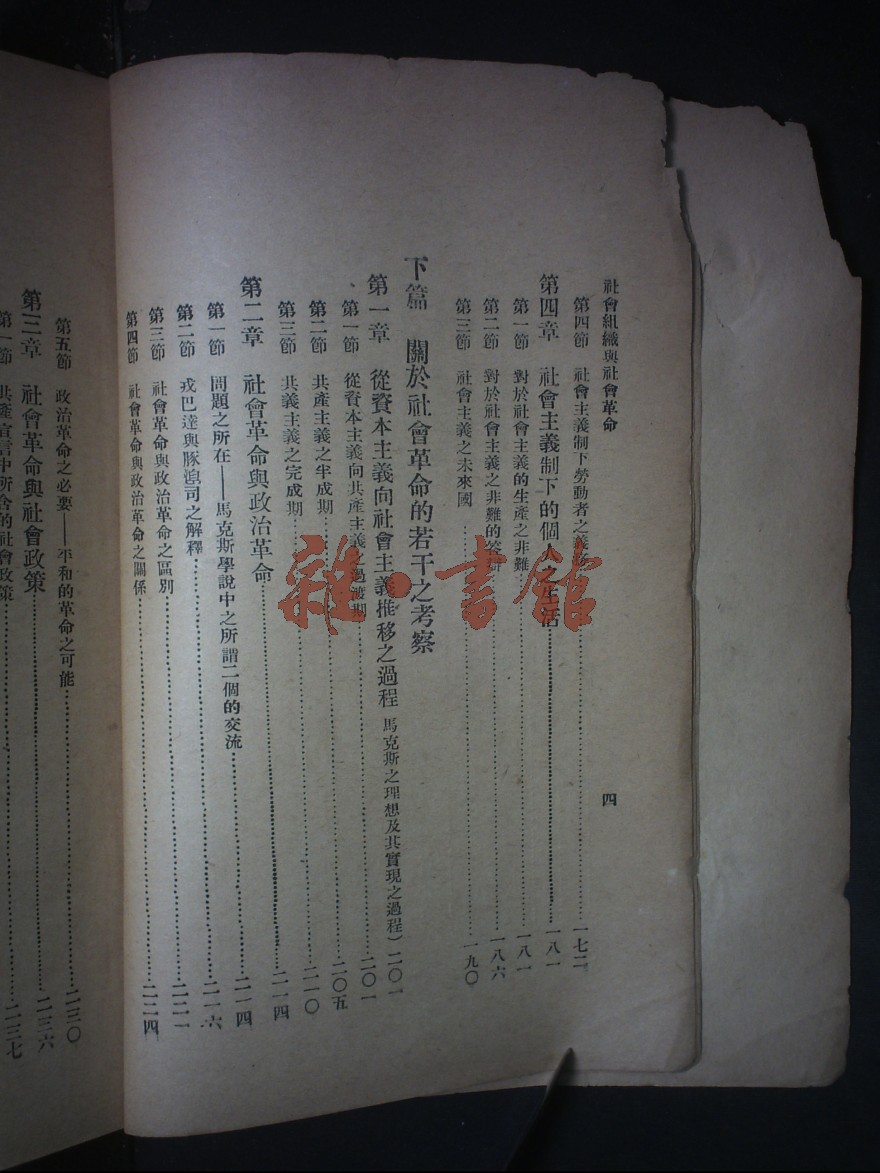 社會組織與社會革命
四
第四節 社會主義制下勞動者之義務……一七二
第四章 社會主義制下的個人之生活……一八一
第一節 對於社會主義的生產之非難……一八一
第二節 對於社會主義之非難的答辯……一八六
第三節 社會主義之未來國……一九〇
下篇 關於社會革命的若干之考察
第一章 從資本主義向社會主義推移之過程 馬克斯之理想及其實現之過程)二〇一
第一節 從資本主義向共產主義之過渡期……二〇一
第二節 共產主義之半成期……二〇五
第三節 共義主義之完成期……二一〇
第二章 社會革命與政治革命……二一四
第一節 問題之所在——馬克斯學說中之所謂二個的交流……二一四
第二節 戎巴達與豚湟司之解釋……二一六
第三節 社會革命與政治革命之區別……二二一
第四節 社會革命與政治革命之關係……二二四
第五節 政治革命之必要——平和的革命之可能……二三〇
第三章 社會革命與社會政策……二三六
第一節 共產宣言中所含的社會政策……二三七
雜·書館